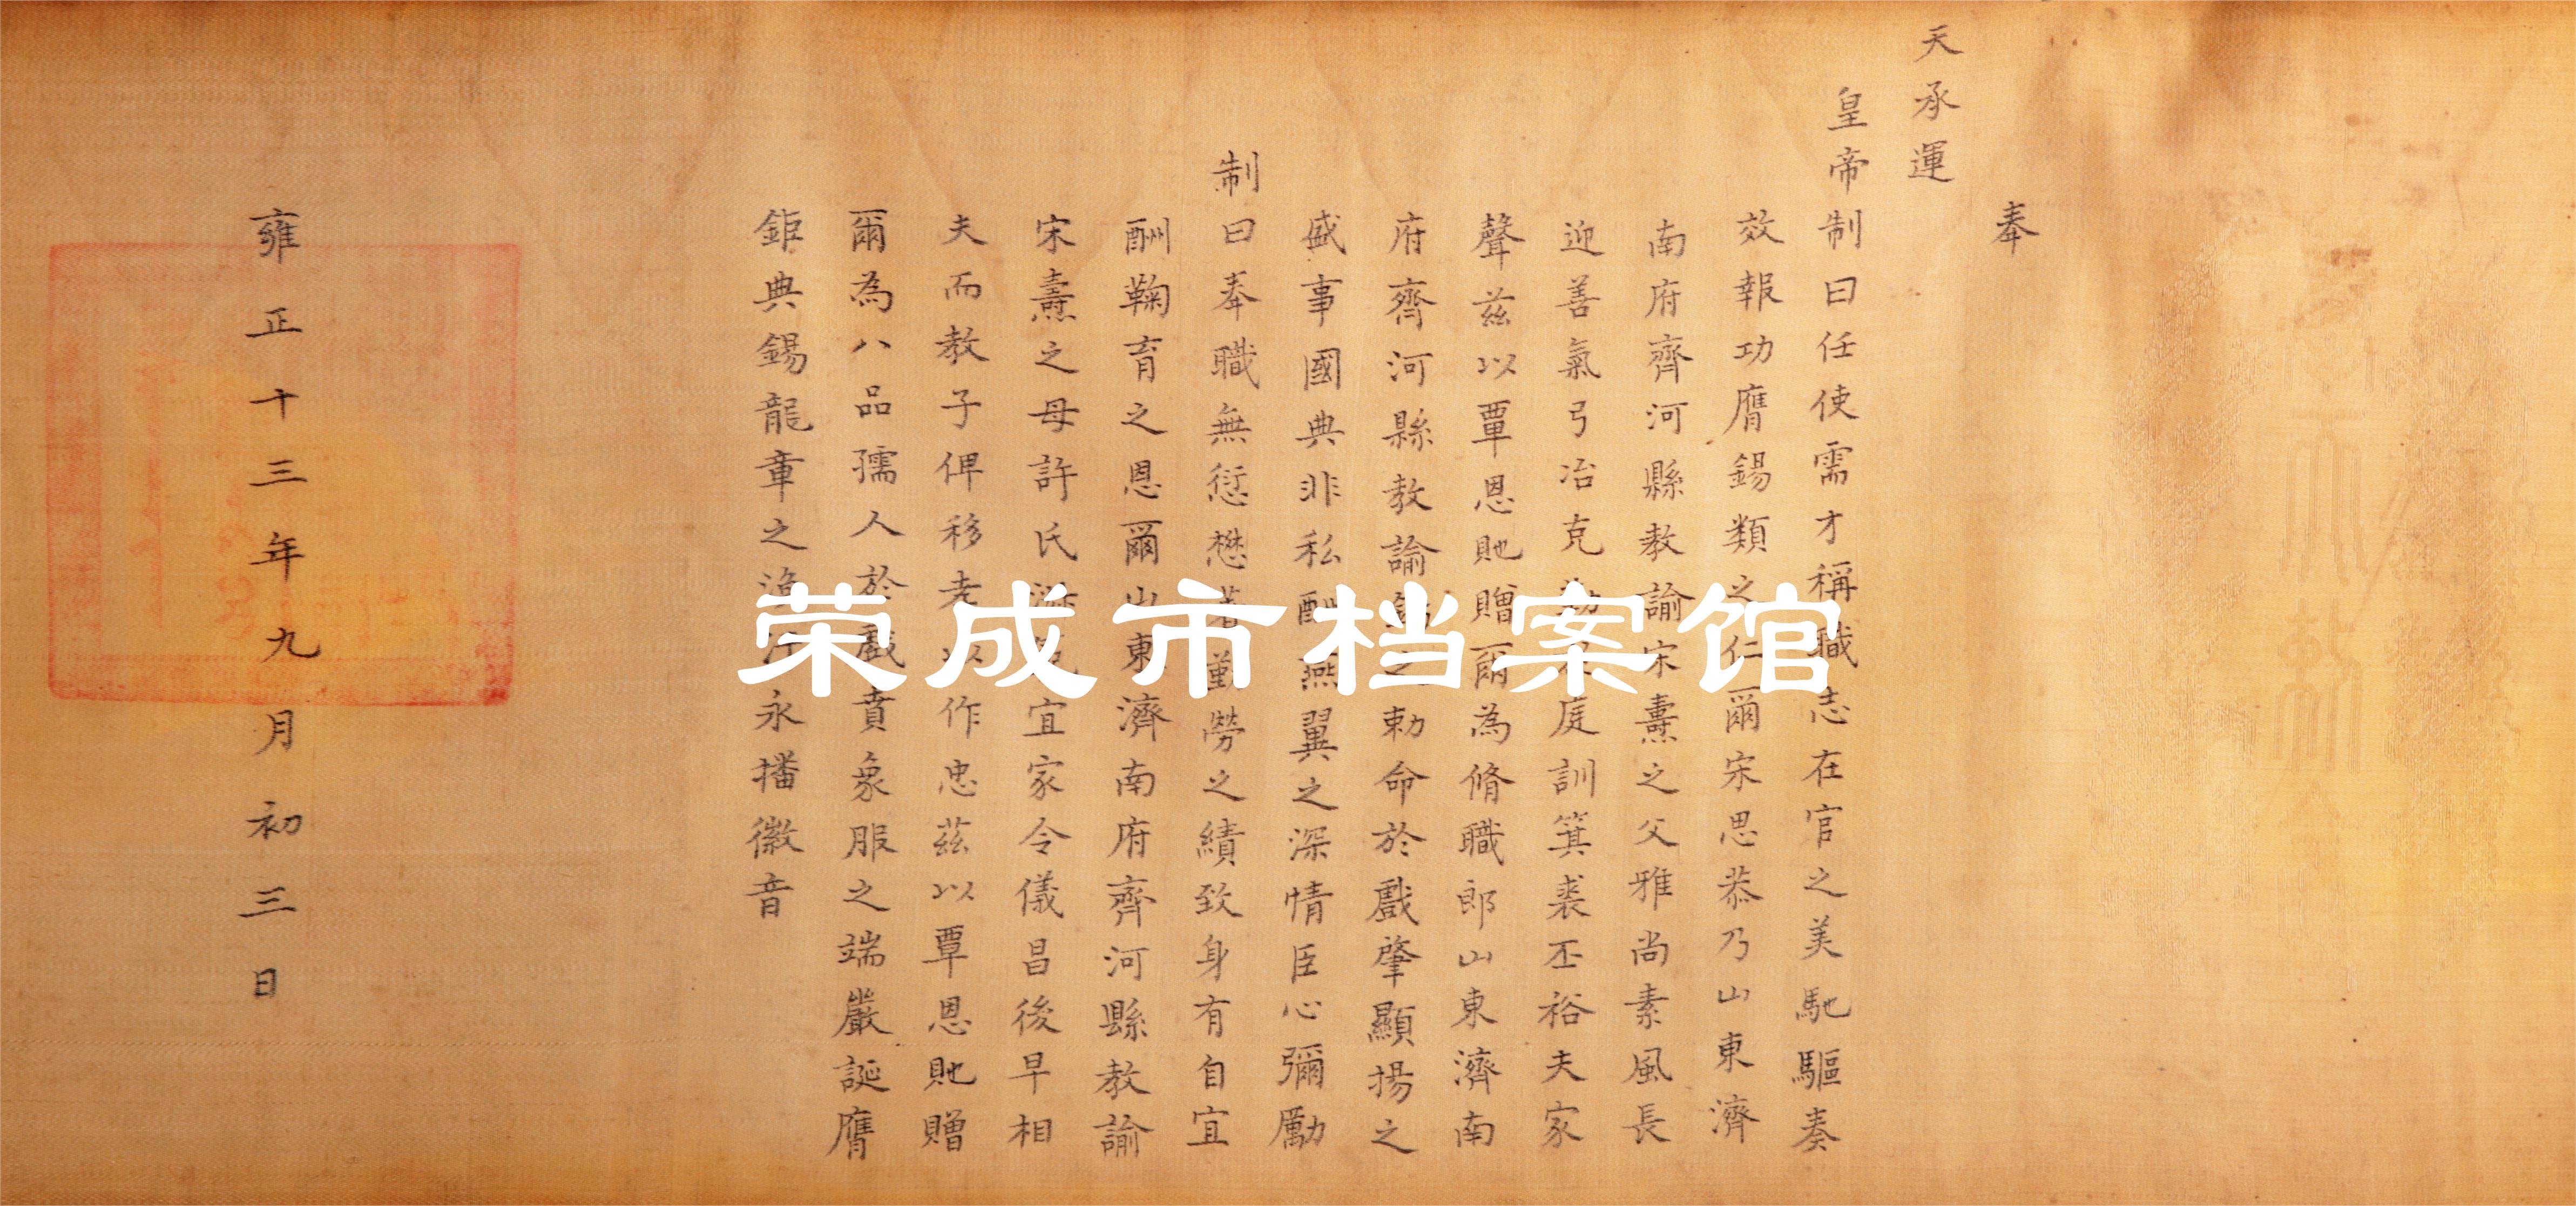 奉
天承運
皇帝制曰任使需才稱職志在官之美馳驅奏
效報功膺錫類之仁爾宋思恭乃山東濟
南府齊河縣教諭宋燾之父雅尚素風長
迎善氣弓冶克庭訓箕裘丕裕夫家
聲茲以覃恩貤贈爾為脩職郎山東濟南
府齊河縣教諭錫之勅命於戲肇顯揚之
盛事國典非私酬燕翼之深情臣心彌勵
制曰奉職無愆懋著勤勞之績致身有自宜
酬鞠育之恩爾山東濟南府齊河縣教諭
宋燾之母許氏淑範宜家令儀昌後早相
夫而教子俾移孝以作忠茲以覃恩貤贈
爾為八品孺人於戲賁象服之端嚴誕膺
鉅典錫龍章之渙汗永播徽音
雍正十三年九月初三日
荣成市档案馆